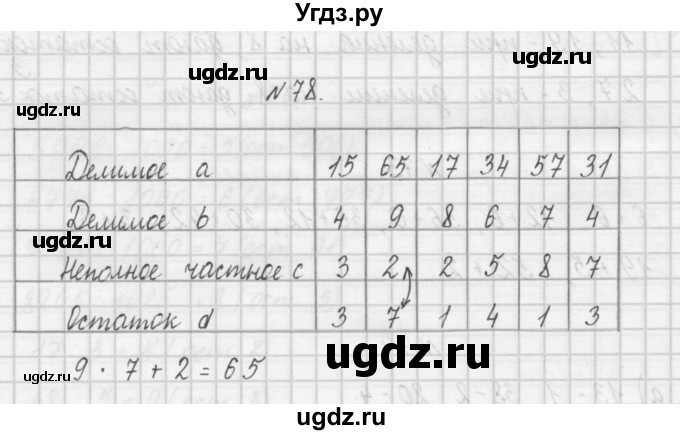 Угдз.ру
ugdz.ru
ugdz.ru
N 78.
Делимое a 15 65 17 34 57 31
Делимое b 4 9 8 6 7 4
ugdz.ru
Неполное частное c 3 2 2 5 8 7
Остаток d 3 7 1 4 1 3
ugdz.ru
ugdz.ru
9 · 7 + 2 = 65
ugdz.ru
ugdz.ru